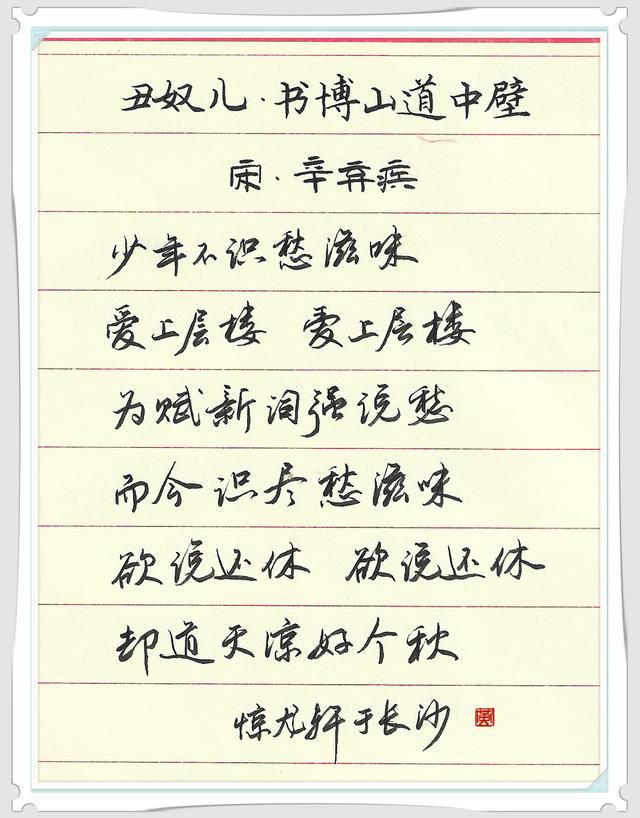 丑奴儿·书博山道中壁
宋·辛弃疾
少年不识愁滋味
爱上层楼 爱上层楼
为赋新词强说愁
而今识尽愁滋味
欲说还休 欲说还休
却道天凉好个秋
惊龙轩于长沙